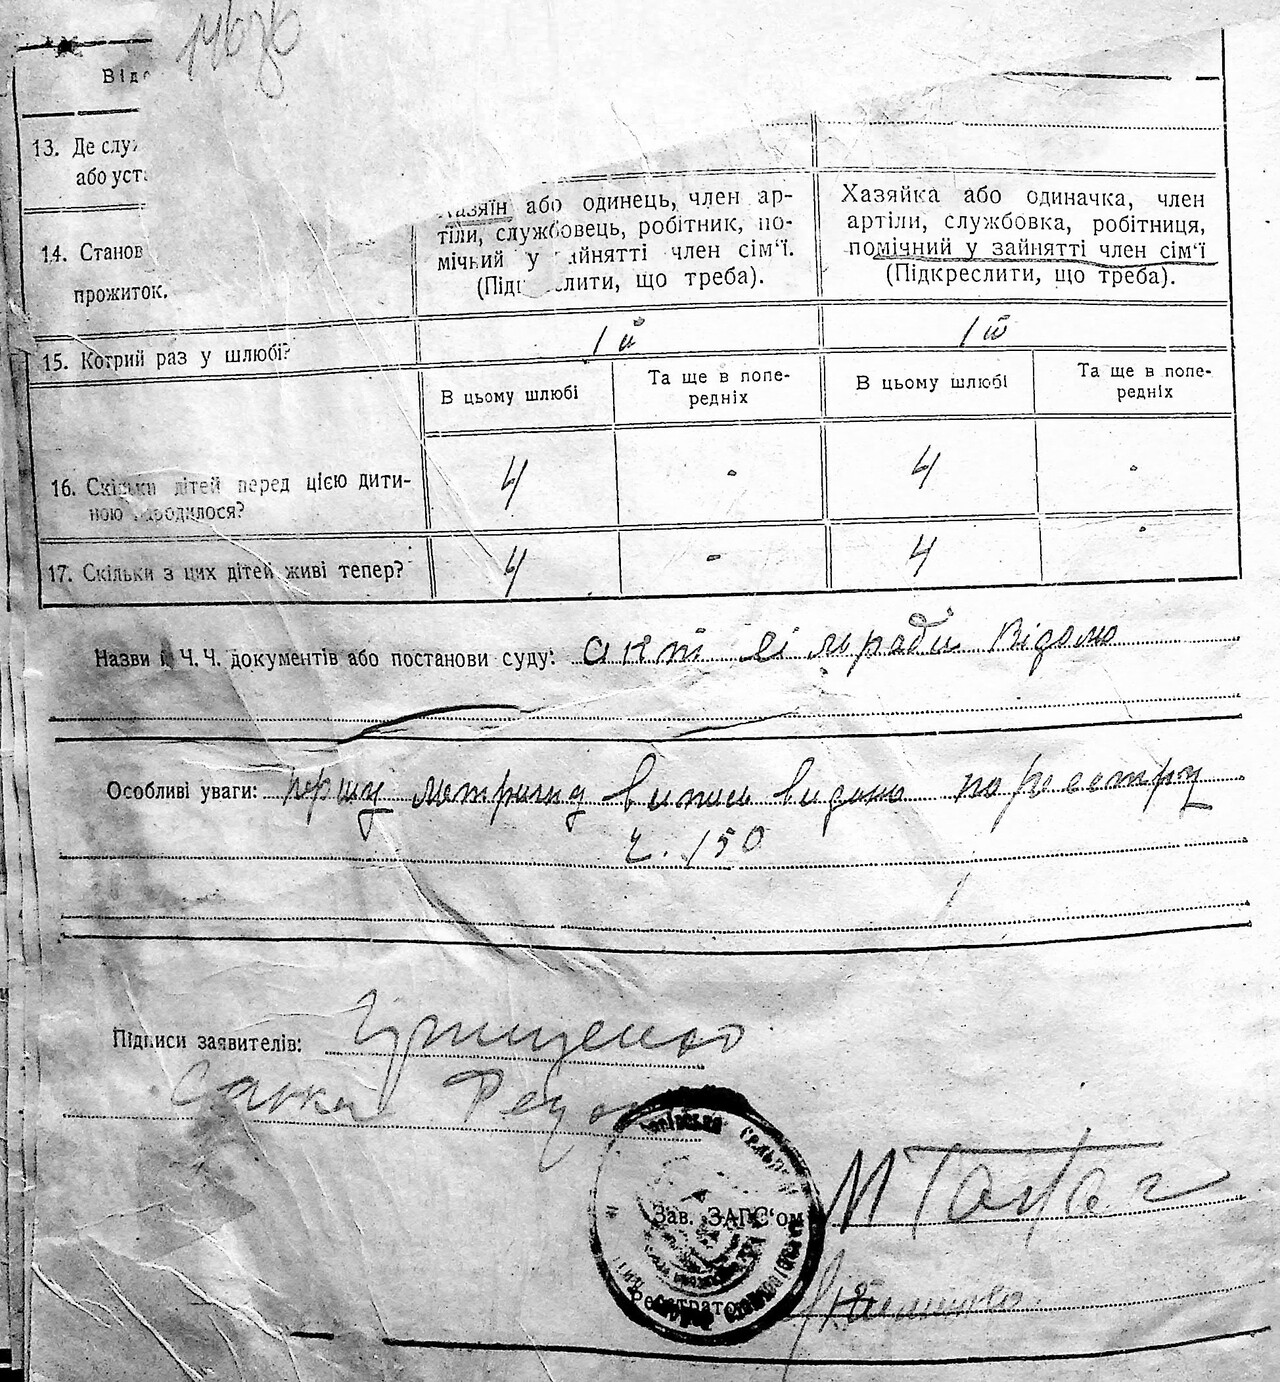 13. Де слу
або уст
14. Станов
прожиток.
Хазяїн або одинець, член ар-
тіли, службовець, робітник, по-
мічний у зайнятті член сім‘ї.
(Підкреслити, що треба).
Хазяйка або одиначка, член
артіли, службовка, робітниця,
помічний у зайнятті член сім‘ї
(Підкреслити, що треба).
15. Котрий раз у шлюбі?
1й
1й
В цьому шлюбі
Та ще в попе-
редніх
В цьому шлюбі
Та ще в попе-
редніх
16. Скільки дітей перед цією дити-
ною народилося?
4 - 4 -
17. Скільки з цих дітей живі тепер?
4 - 4 -
Назви і Ч. Ч. документів або постанови суду: акт сільради Відомо
Особливі уваги: першу метричну випись видано по реєстру
ч. 150
Підписи заявителів: Грищенко
Зав. ЗАГС‘ом
Реєстратор